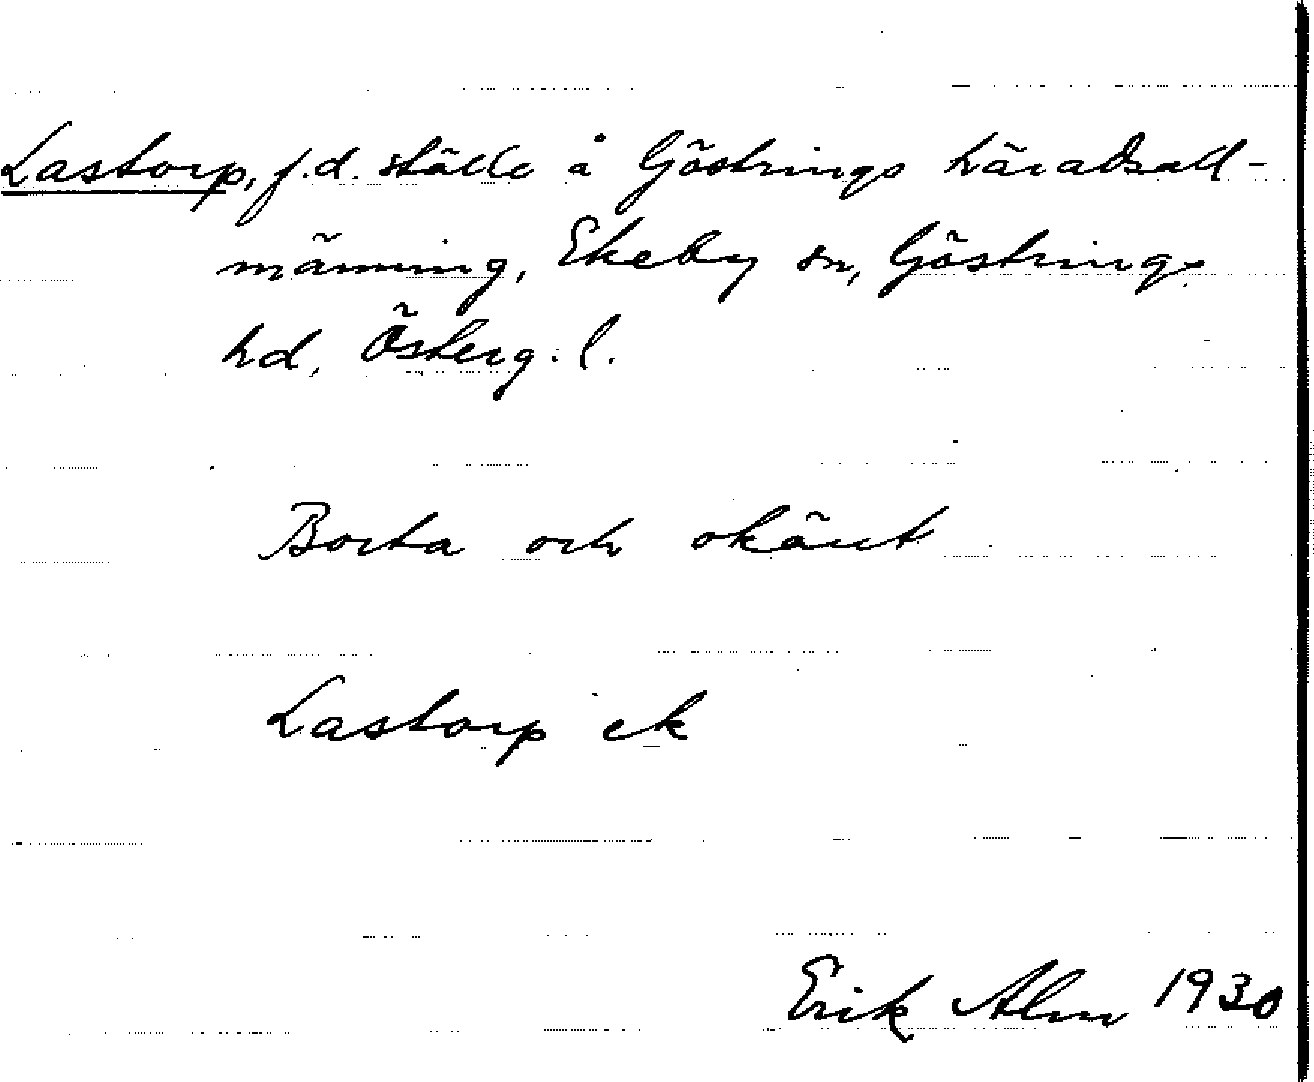 Lastorp, f.d. ställe å Göstrings häradsall-
männing, Ekeby sn, Göstrings
hd, Österg. l.
Borta och okänt
Lastorp ek
Erik Alm 1930